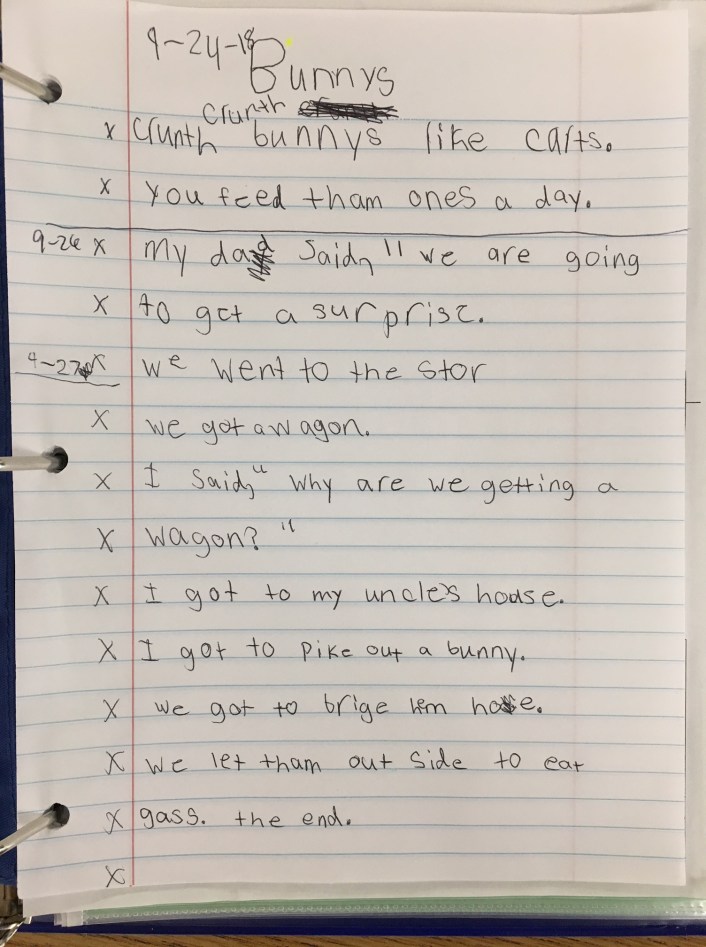 9-24-18
Bunnys
Crunth
x Crunth bunnys like carts.
x you feed tham ones a day.
9-26 x my dad said, "we are going
x to get a surprise.
9-27 x we went to the stor
x we got a wagon.
x I said, "why are we getting a
x wagon?"
x I got to my uncle's house.
x I got to pike out a bunny.
x we got to brige him
x we let tham out side to eat
x gass. the end.
x